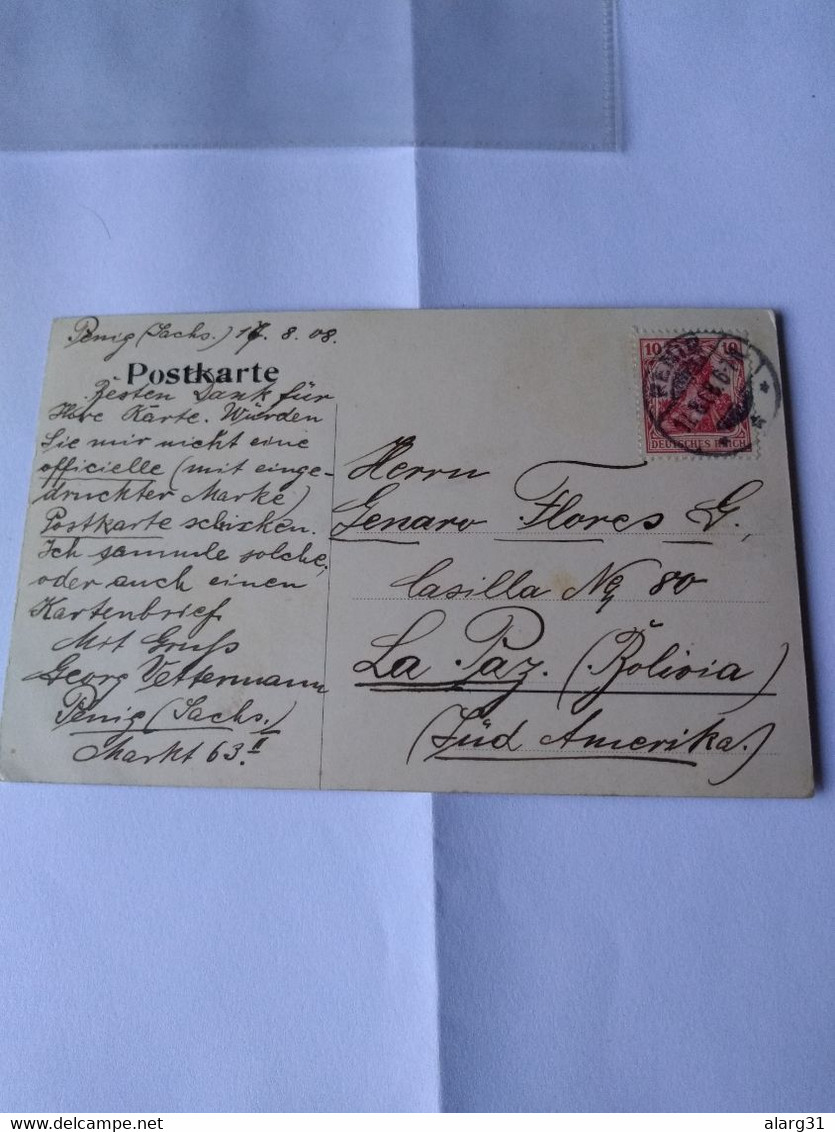 Penig (Sachs.) 17. 8. 08.
Postkarte
Besten Dank für
Ihre Karte. Würden
Sie mir nicht eine
officielle (mit einge-
druckter Marke)
Postkarte schicken.
Ich sammle solche,
oder auch einen
Kartenbrief.
Mit Gruß
Georg Vettermann
Penig (Sachs.)
Markt 63 II
10 10
DEUTSCHES REICH
PENIG
Herrn
Genaro Flores G.,
Casilla No 80
La Paz. (Bolivia)
(Süd Amerika.)
delcampe.net
alarg31